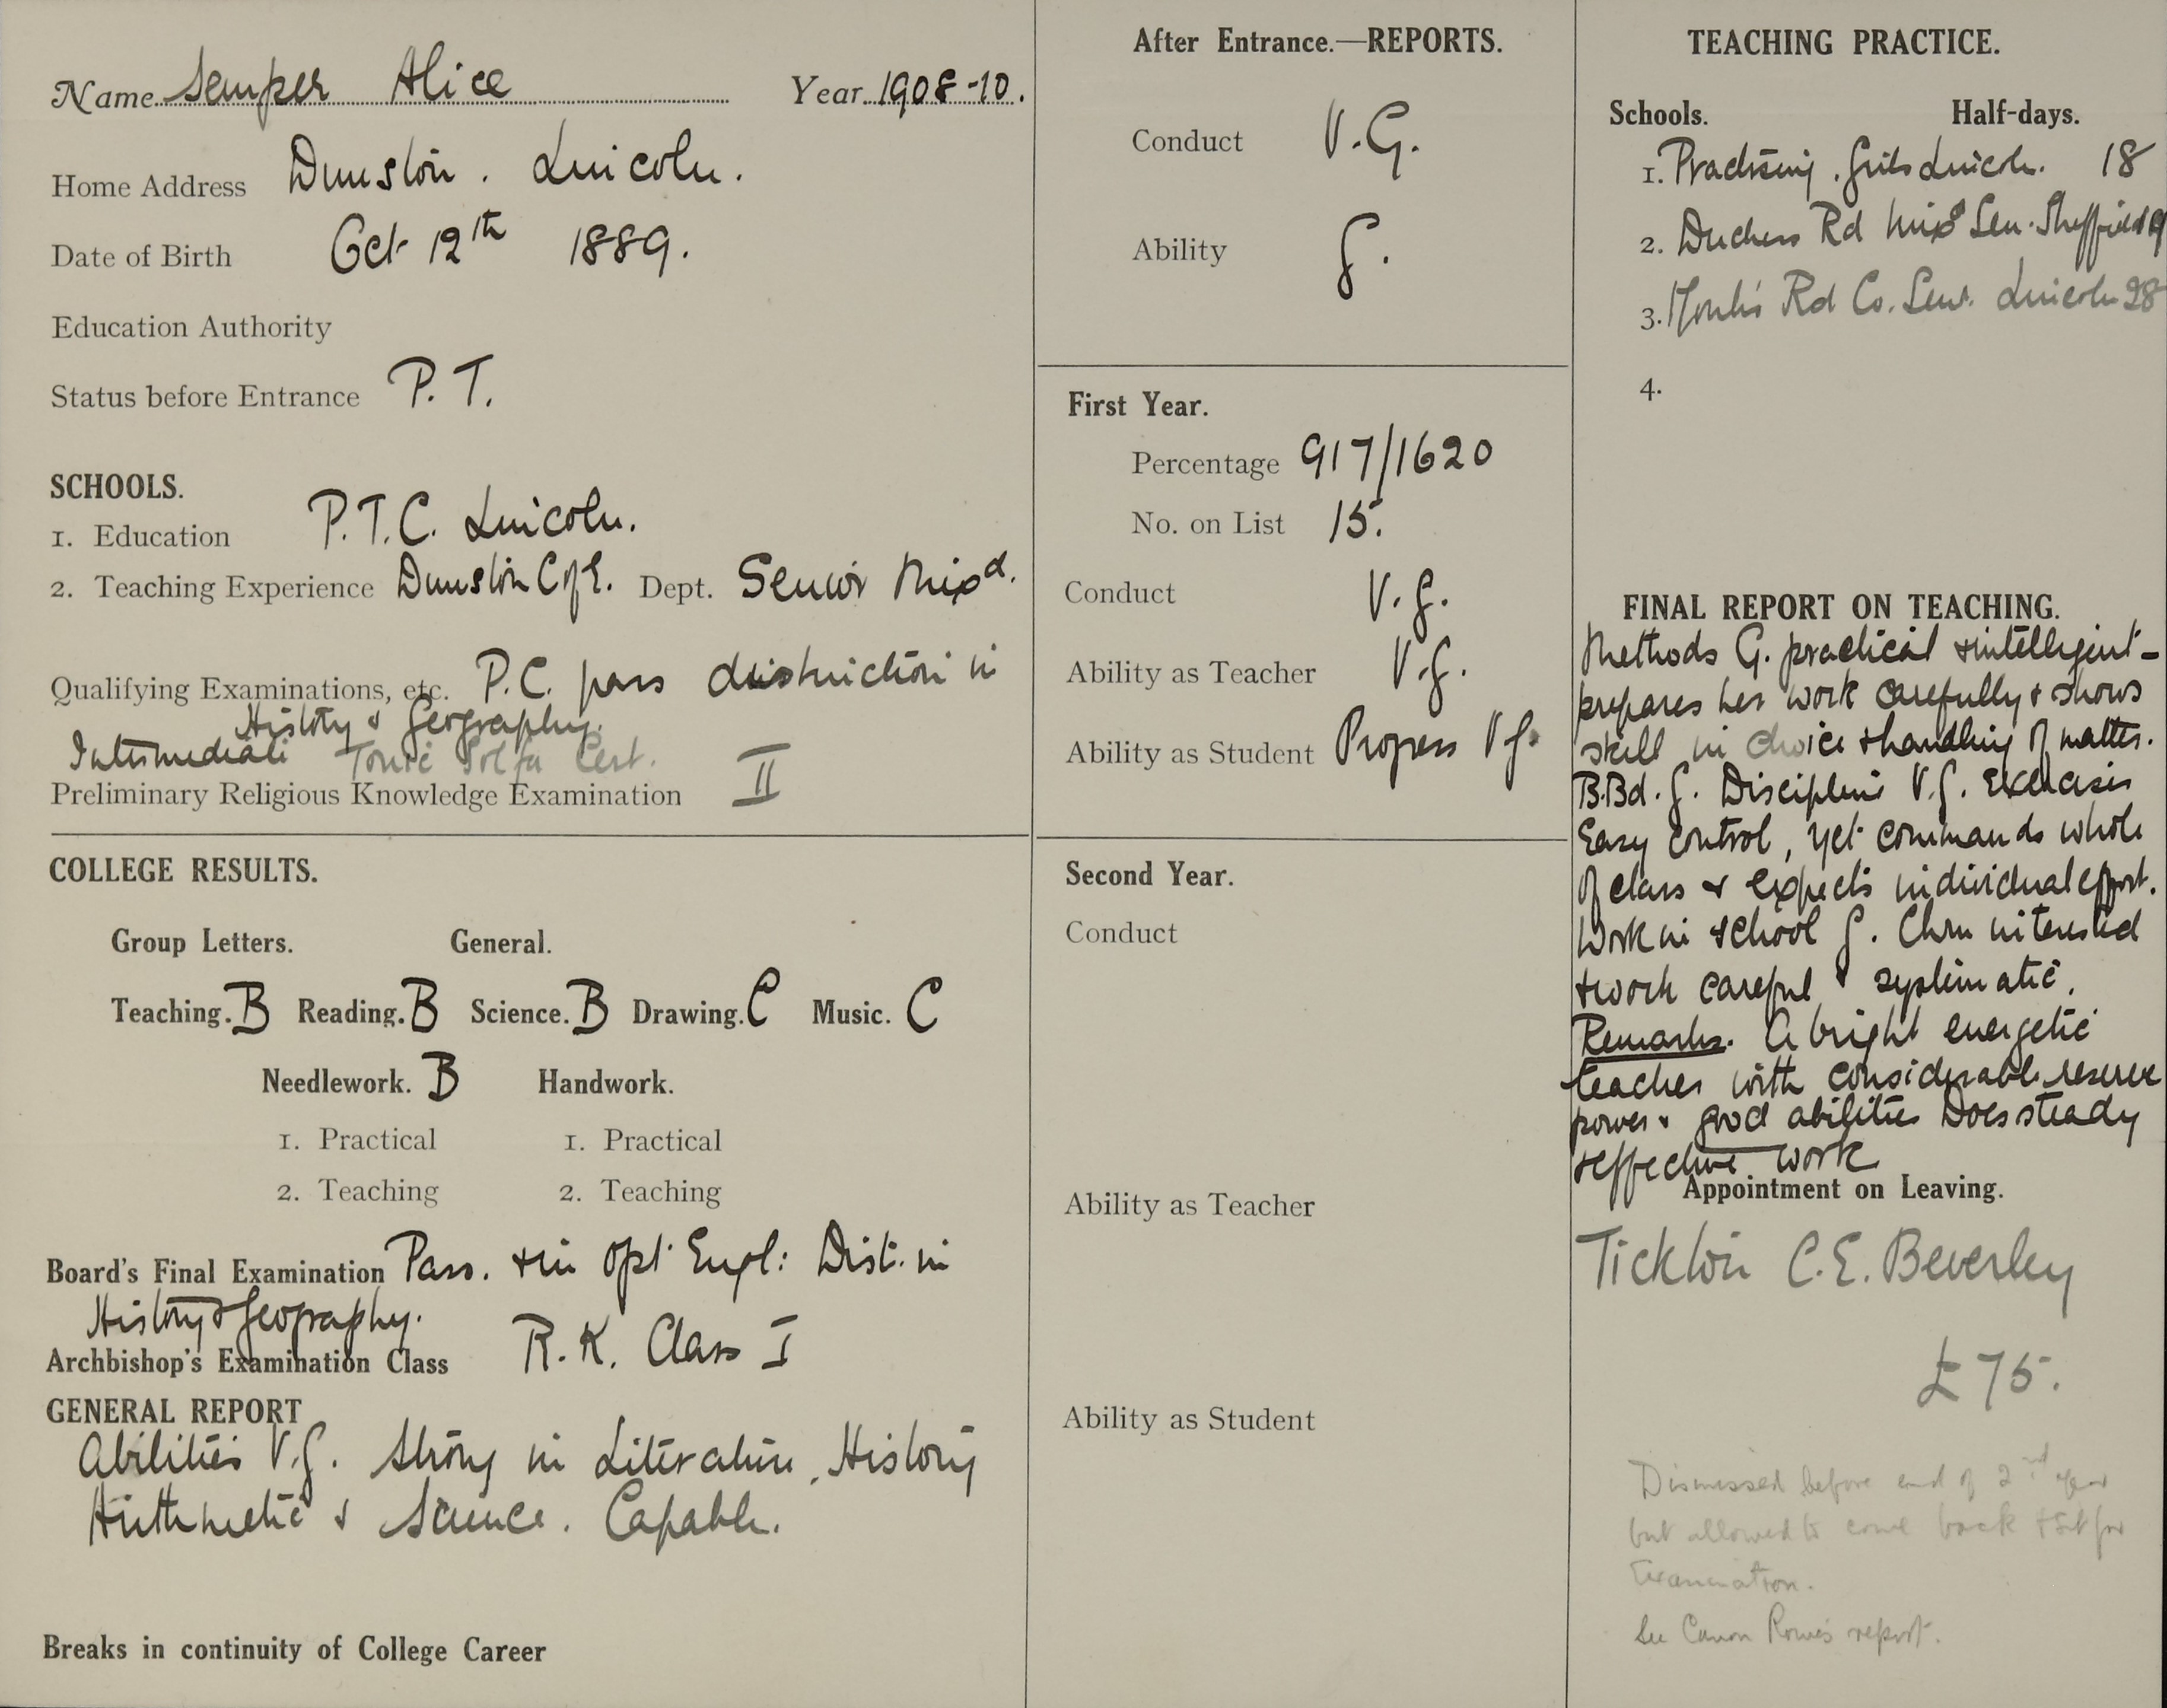 Name Semper Alice Year 1908-10.
Home Address Dunston. Lincoln.
Date of Birth Oct 12th 1889.
Education Authority
Status before Entrance P.T.
SCHOOLS.
1. Education P.T.C. Lincoln.
2. Teaching Experience Dunston C of E. Dept. Senior Mixd.
Qualifying Examinations, etc. P.C. pass distinction in
History & Geography.
Intermediate Tonic Sol fa Cert.
Preliminary Religious Knowledge Examination II
COLLEGE RESULTS.
Group Letters. General.
Teaching. B Reading. B Science. B Drawing. C Music. C
Needlework. B Handwork.
1. Practical 1. Practical
2. Teaching 2. Teaching
Board's Final Examination Pass. & in Opt Engl: Dist. in
History & Geography.
Archbishop's Examination Class R.K. Class I
GENERAL REPORT
Abilities V.G. Strong in Literature, History
Arithmetic & Science. Capable.
Breaks in continuity of College Career
After Entrance.—REPORTS.
Conduct V.G.
Ability G.
First Year.
Percentage 917/1620
No. on List 15.
Conduct V.G.
Ability as Teacher V.G.
Ability as Student Progress V.G.
Second Year.
Conduct
Ability as Teacher
Ability as Student
TEACHING PRACTICE.
Schools. Half-days.
1. Practising. Girls Lincoln. 18
2. Duchess Rd Mixd Sen. Sheffield 9
3. Monks Rd Co. Sen. Lincoln 28
4.
FINAL REPORT ON TEACHING.
Methods G. practical & intelligent -
prepares her work carefully & shows
skill in choice & handling of matter.
B.Bd. G. Discipline V.G. Exercises
Easy control, yet commands whole
of class & expects individual effort.
Work in School G. Chn interested
& work careful & systematic.
Remarks. A bright energetic
teacher with considerable reserve
power & good abilities Does steady
& effective work
Appointment on Leaving.
Tickton C.E. Beverley
£75.
Dismissed before end of 2nd year
but allowed to come back & sit for
Examination.
See Canon Rowe's report.